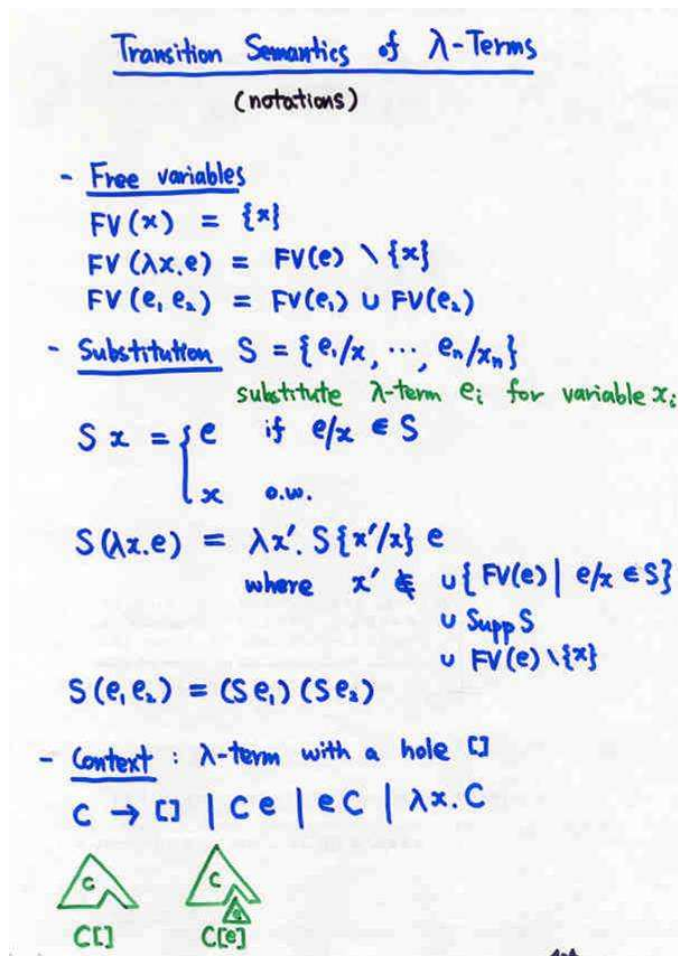 Transition Semantics of λ-Terms
(notations)
- Free variables
FV(x) = {x}
FV(λx.e) = FV(e) \ {x}
FV(e₁ e₂) = FV(e₁) ∪ FV(e₂)
- Substitution S = {e₁/x, ⋯, eₙ/xₙ}
substitute λ-term eᵢ for variable xᵢ
S x = { e if e/x ∈ S
x o.w.
S(λx.e) = λx'. S{x'/x} e
where x' ∉ ∪{ FV(e) | e/x ∈ S}
∪ Supp S
∪ FV(e) \{x}
S(e₁ e₂) = (S e₁) (S e₂)
- Context : λ-term with a hole []
C → [] | C e | e C | λx. C
C C e
C[] C[e]